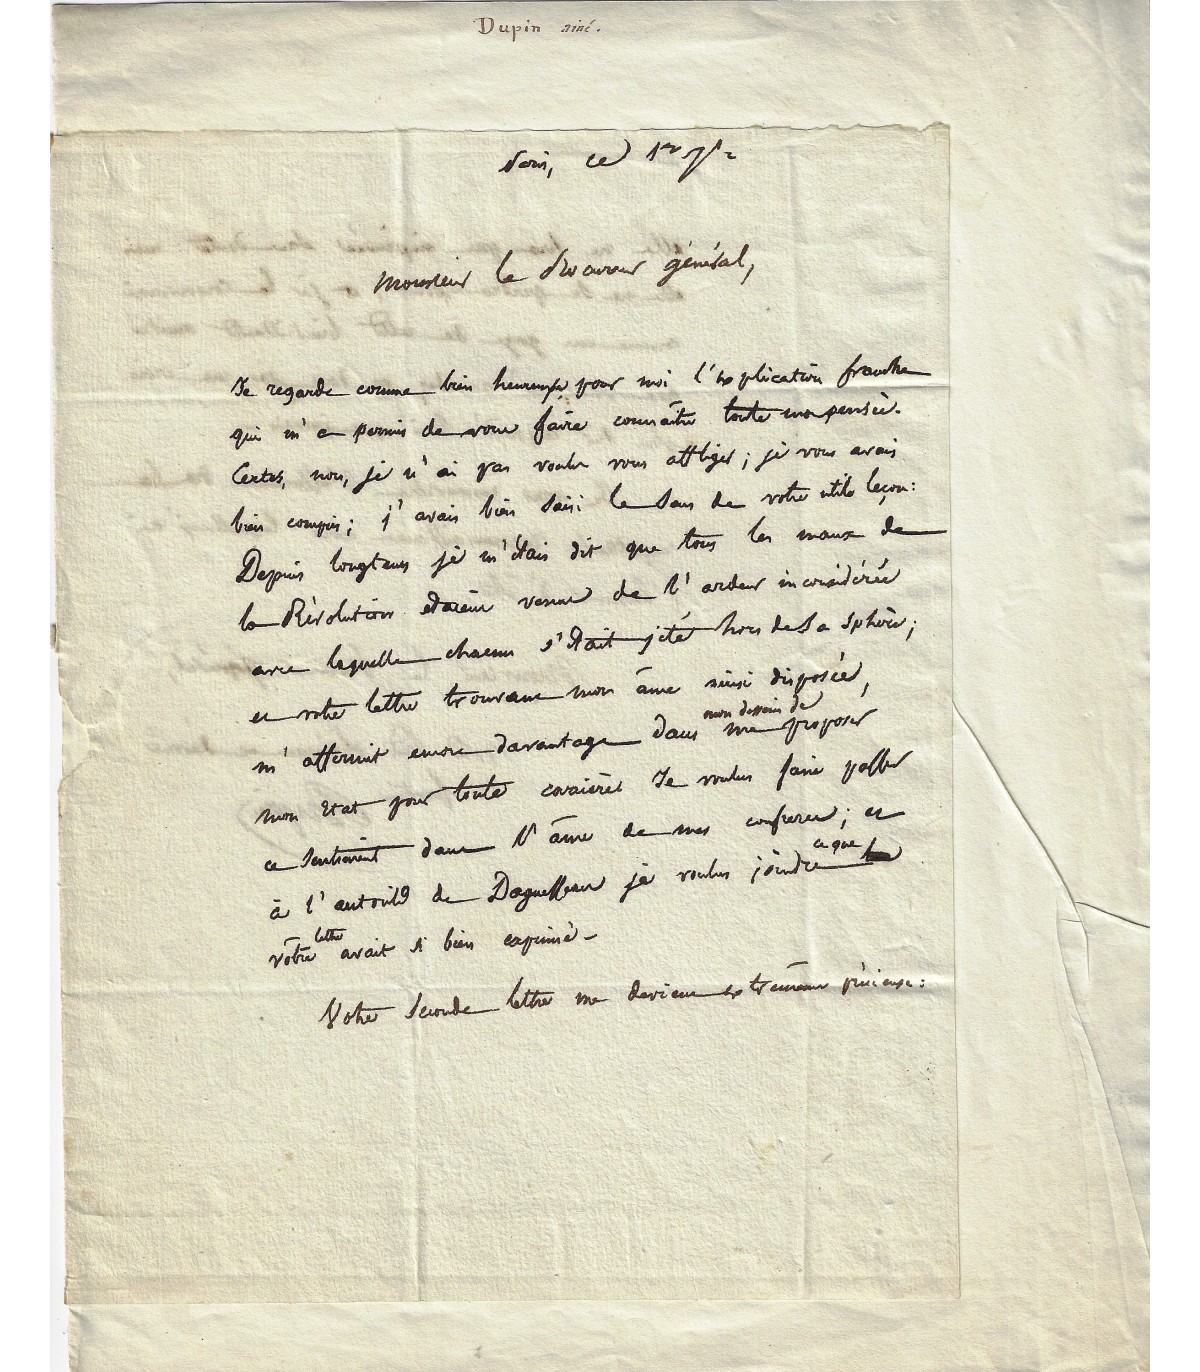 Dupin ainé.
Paris, ce 1er 7bre
Monsieur le Procureur général,
Je regarde comme bien heureuse pour moi l'explication franche
qui m'a permis de vous faire connaître toute ma pensée.
Certes, non, je n'ai pas voulu vous affliger; je vous avais
bien compris; j'avais bien saisi le sens de votre utile leçon:
Depuis longtems je m'étais dit que tous les maux de
la Révolution étaient venus de l'ardeur inconsidérée
avec laquelle chacun s'était jeté hors de sa sphère;
et votre lettre trouvant mon âme ainsi disposée,
m'affermit encore davantage dans mon dessein de me proposer
mon Etat pour toute carrière. Je voulus faire passer
ce sentiment dans l'âme de mes confreres; et
à l'autorité de Daguesseau je voulus joindre ce que
vôtre lettre avait si bien exprimé.
Votre seconde lettre me devient extrêmement précieuse: